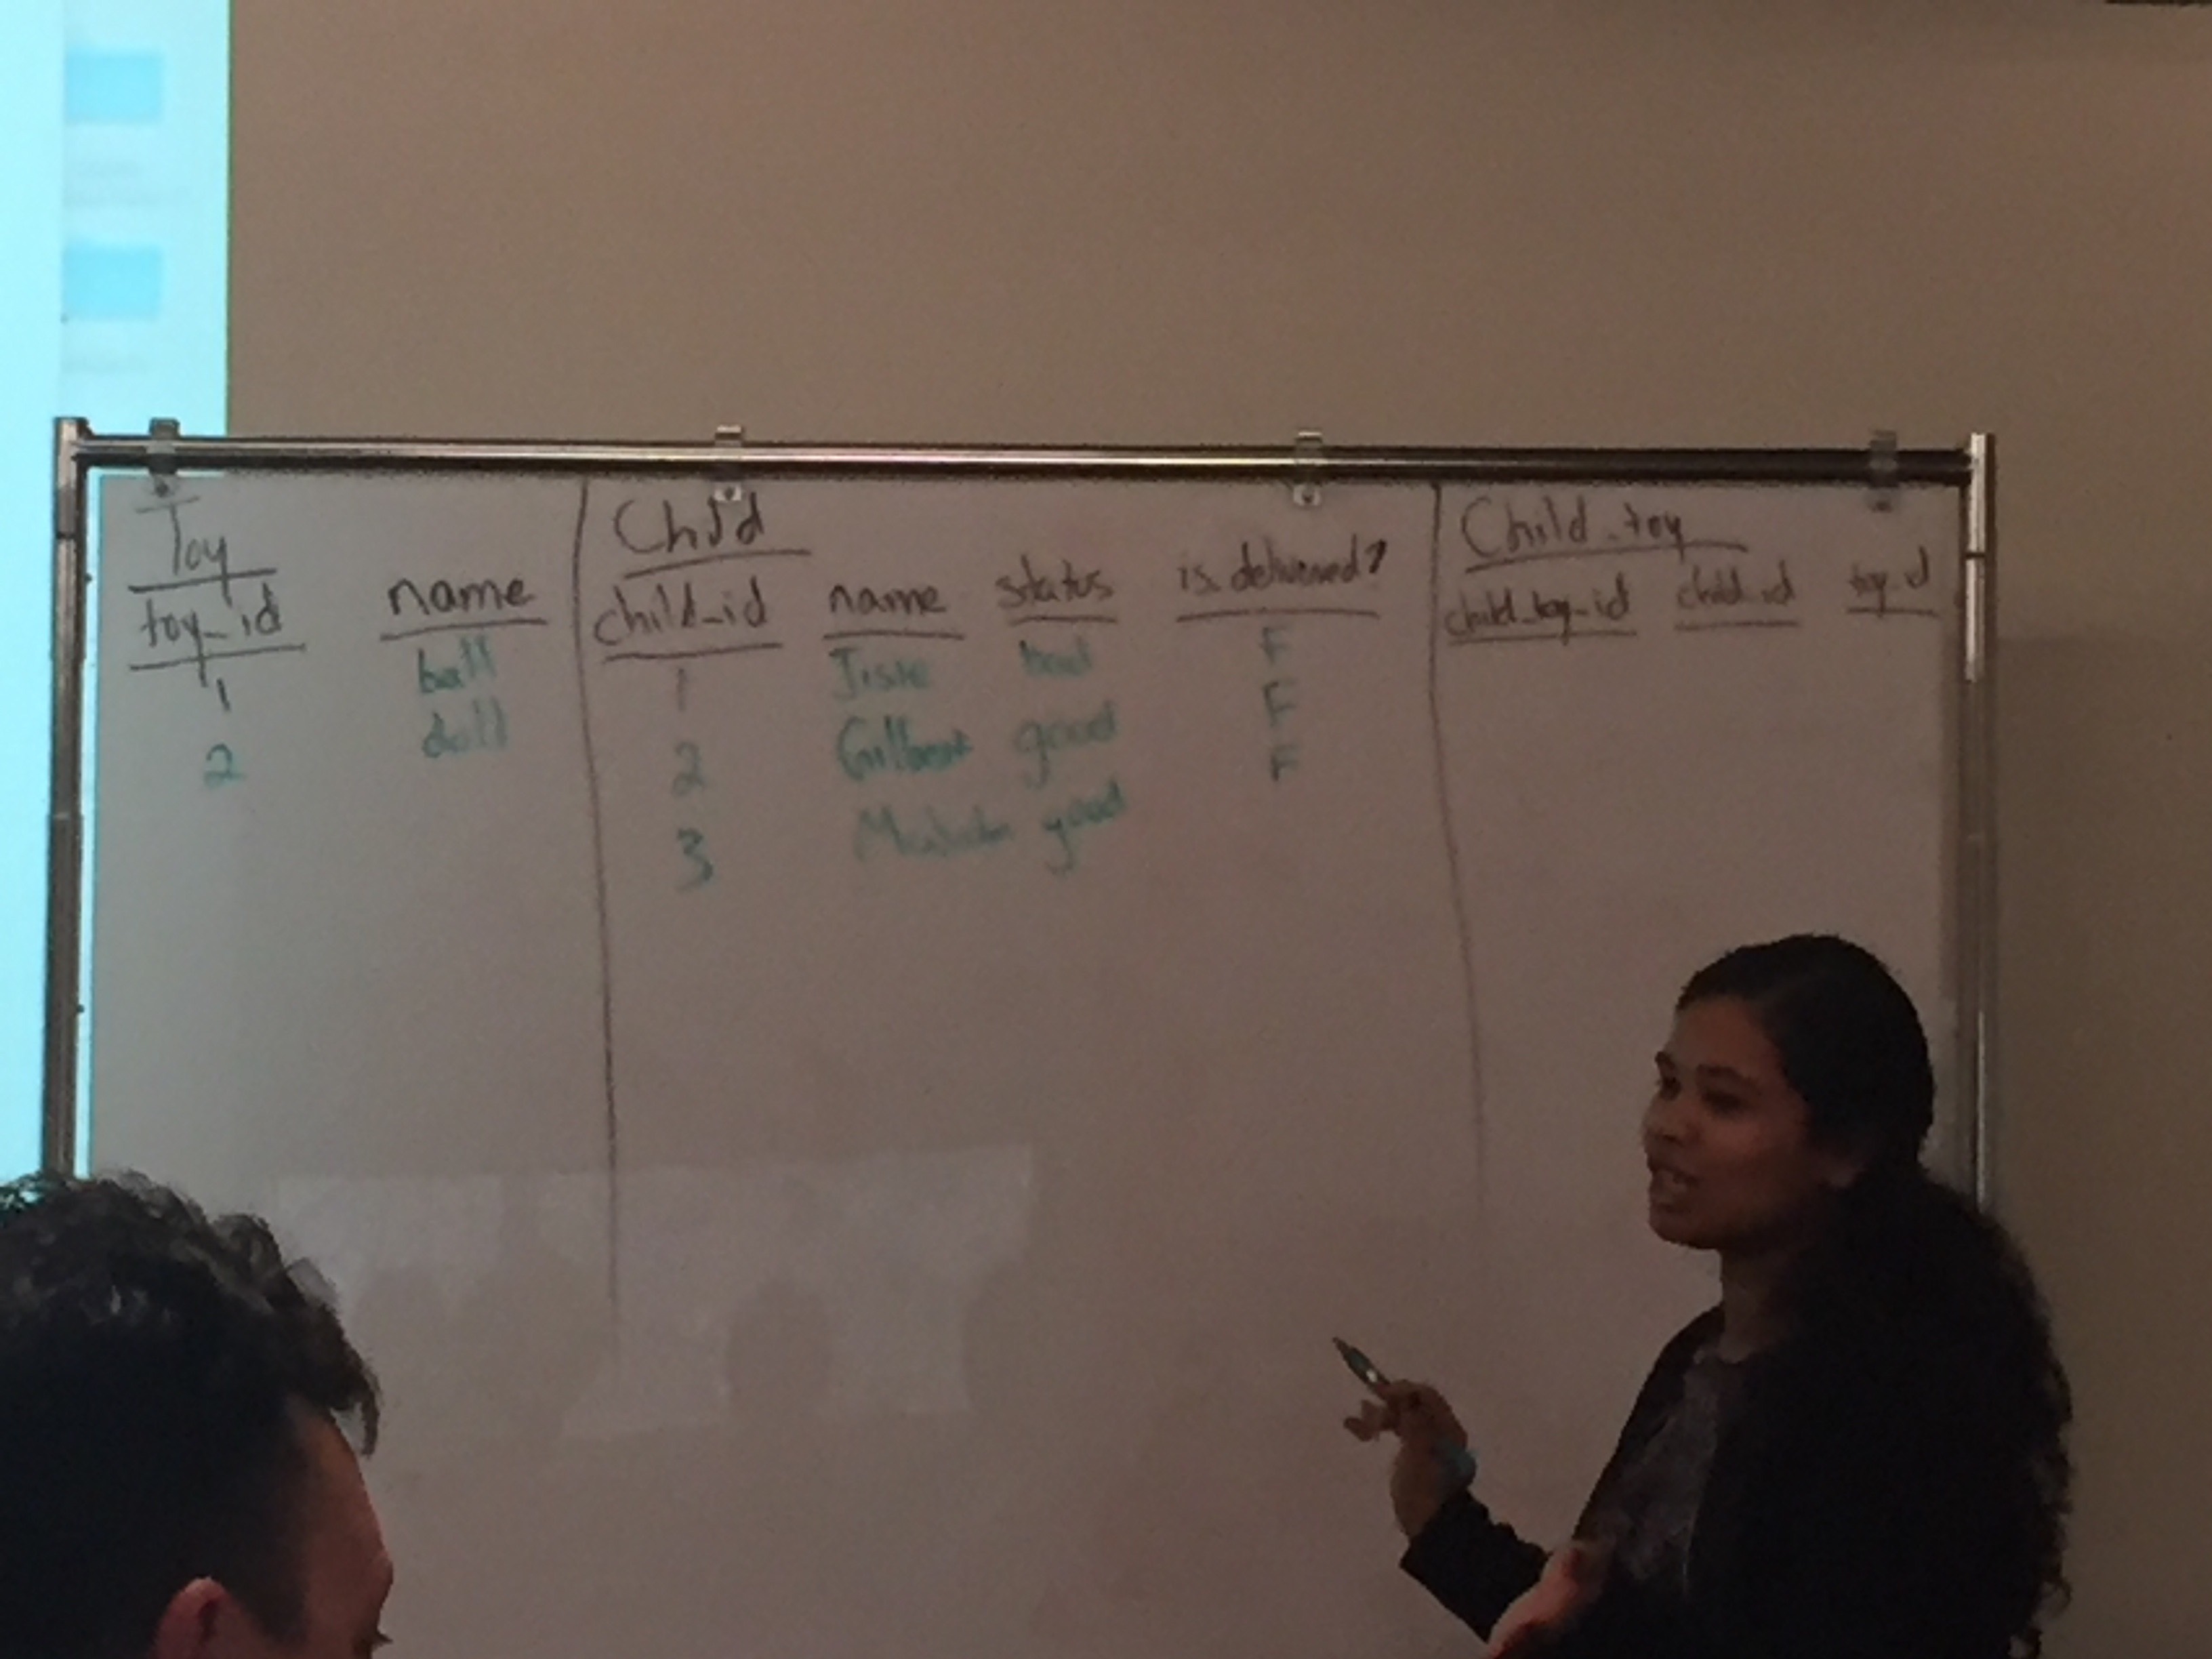 Toy
toy_id name
1 ball
2 doll
Child
child_id name status is delivered?
1 bad F
2 Gilbert good F
3 good F
Child_toy
child_toy_id child_id toy_id